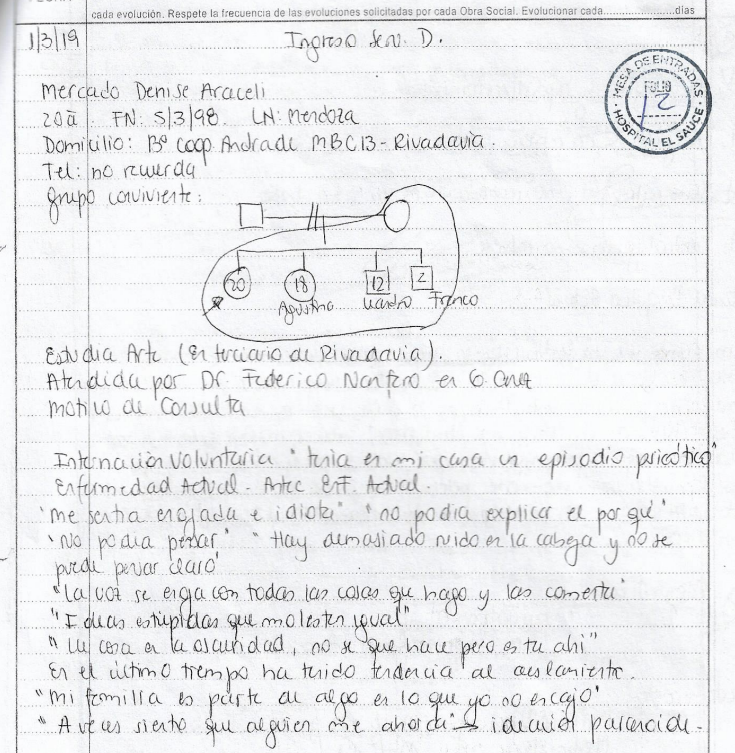 cada evolución. Respete la frecuencia de las evoluciones solicitadas por cada Obra Social. Evolucionar cada....................días
1/3/19 Ingreso Serv. D.
MESA DE ENTRADAS
FOLIO
12
HOSPITAL EL SAUCE
Mercado Denise Araceli
20a. FN: 5/3/98. LN: Mendoza
Domicilio: Bº Coop Andrade MBC13 - Rivadavia.
Tel: no recuerda
grupo conviviente:
20 18 12 2
Agustina Franco
Estudia Arte (En terciario de Rivadavia).
Atendida por Dr. Federico en G. Cruz
Motivo de Consulta
Internación Voluntaria "tenia en mi casa un episodio psicótico"
Enfermedad Actual - Antec Enf. Actual.
"me sentia enojada e idiota" "no podia explicar el por qué"
"No podia pensar" "Hay demasiado ruido en la cabeza y no se
puede pensar claro"
"La voz se enoja con todas las cosas que hago y las comenta"
"Ideas estupidas que molesten igual"
"La cosa en la oscuridad, no se que hace pero esta ahi"
En el último tiempo ha tenido tendencia al aislamiento.
"mi familia es parte de algo en lo que yo no encajo"
"A veces siento que alguien me ahorca" → ideación paranoide.